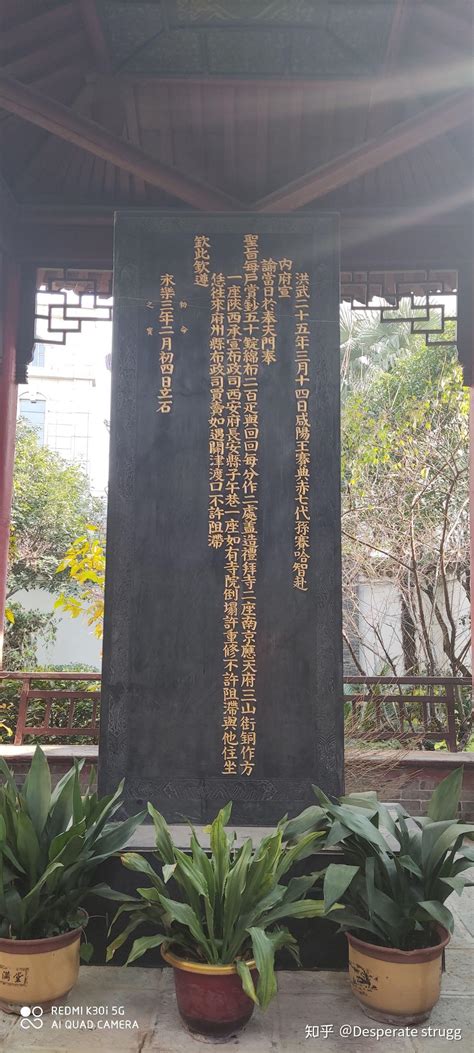 洪武二十五年三月十四日咸陽王賽典赤七代孫賽哈智赴
內府宣
諭當日於奉天門奉
聖旨每戶賞鈔五十錠綿布二百疋與回回每分作二處蓋造禮拜寺二座南京應天府三山街銅作方
一座陝西承宣布政司西安府長安縣子午巷一座如有寺院倒塌許重修不許阻滯與他住坐
恁往來府州縣布政司買賣如遇關津渡口不許阻滯
欽此欽遵
永樂三年二月初四日立石
勅命
之寶
REDMI K30i 5G
AI QUAD CAMERA
知乎 @Desperate strugg